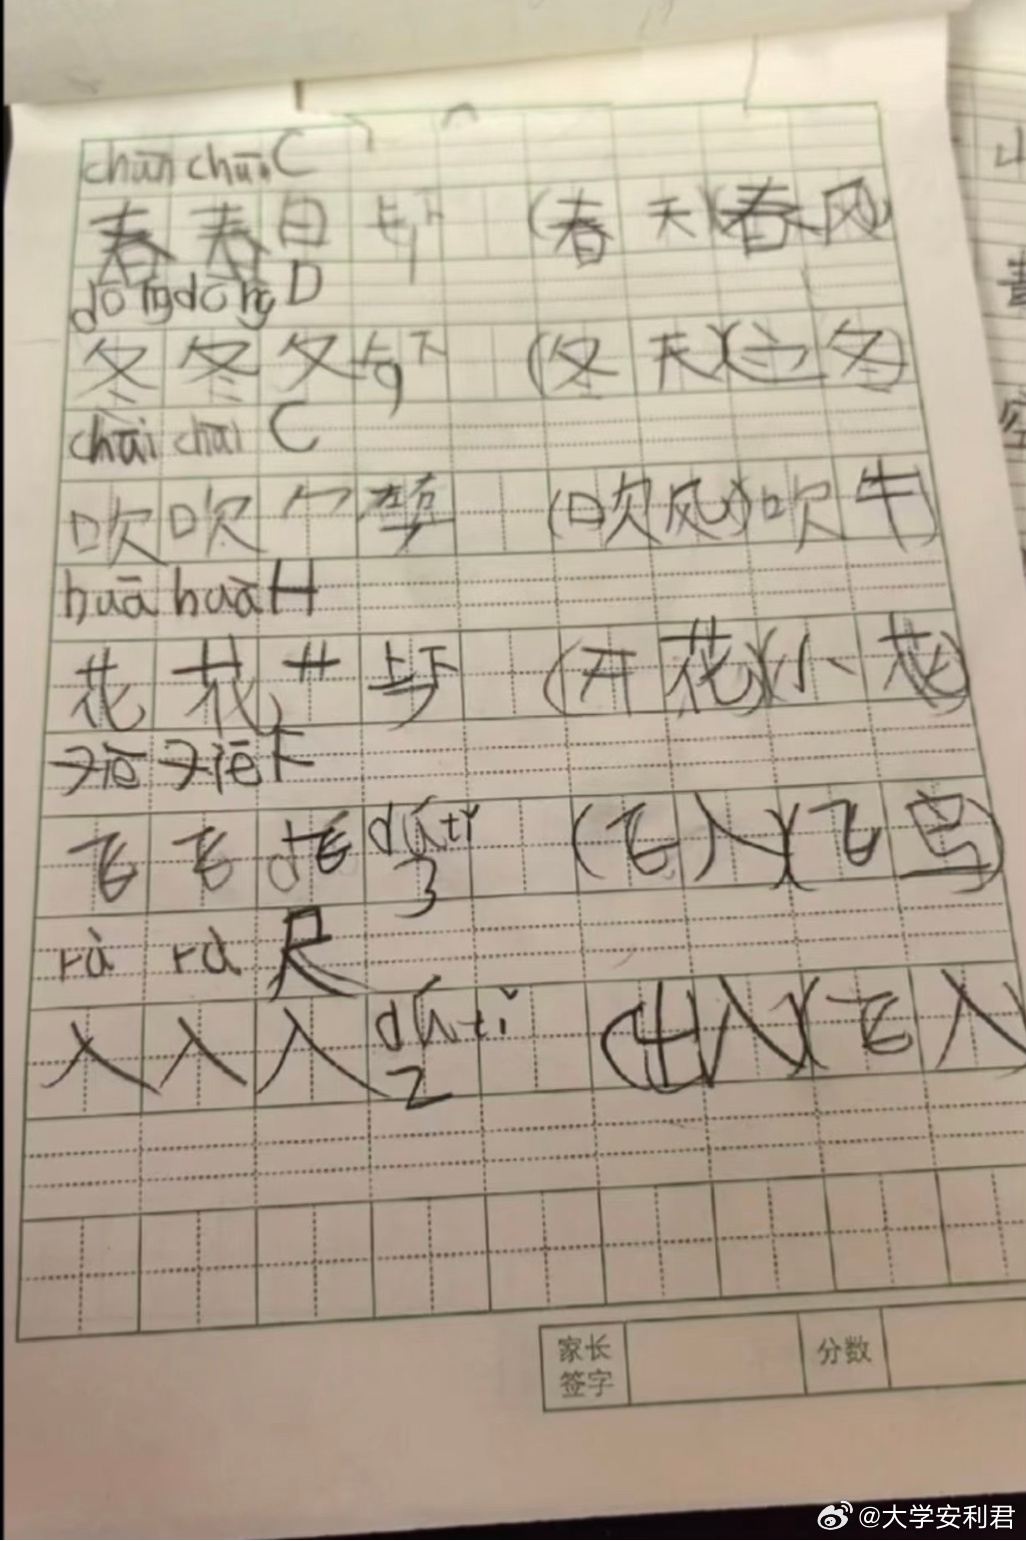 chūn chūn C
春 春 日 与下 (春 天)(春 风)
dōng dōng D
冬 冬 夂 与下 (冬 天)(立 冬)
chūi chūi C
吹 吹 (吹 风)(吹 牛)
huā huā H
花 花 艹 与下 (开 花)(小 花)
fēi fēi F
飞 飞 飞 dú tǐ 3 (飞 入)(飞 鸟)
rù rù R
入 入 入 dú tǐ 2 (出 入)(飞 入)
家长签字 分数
@大学安利君